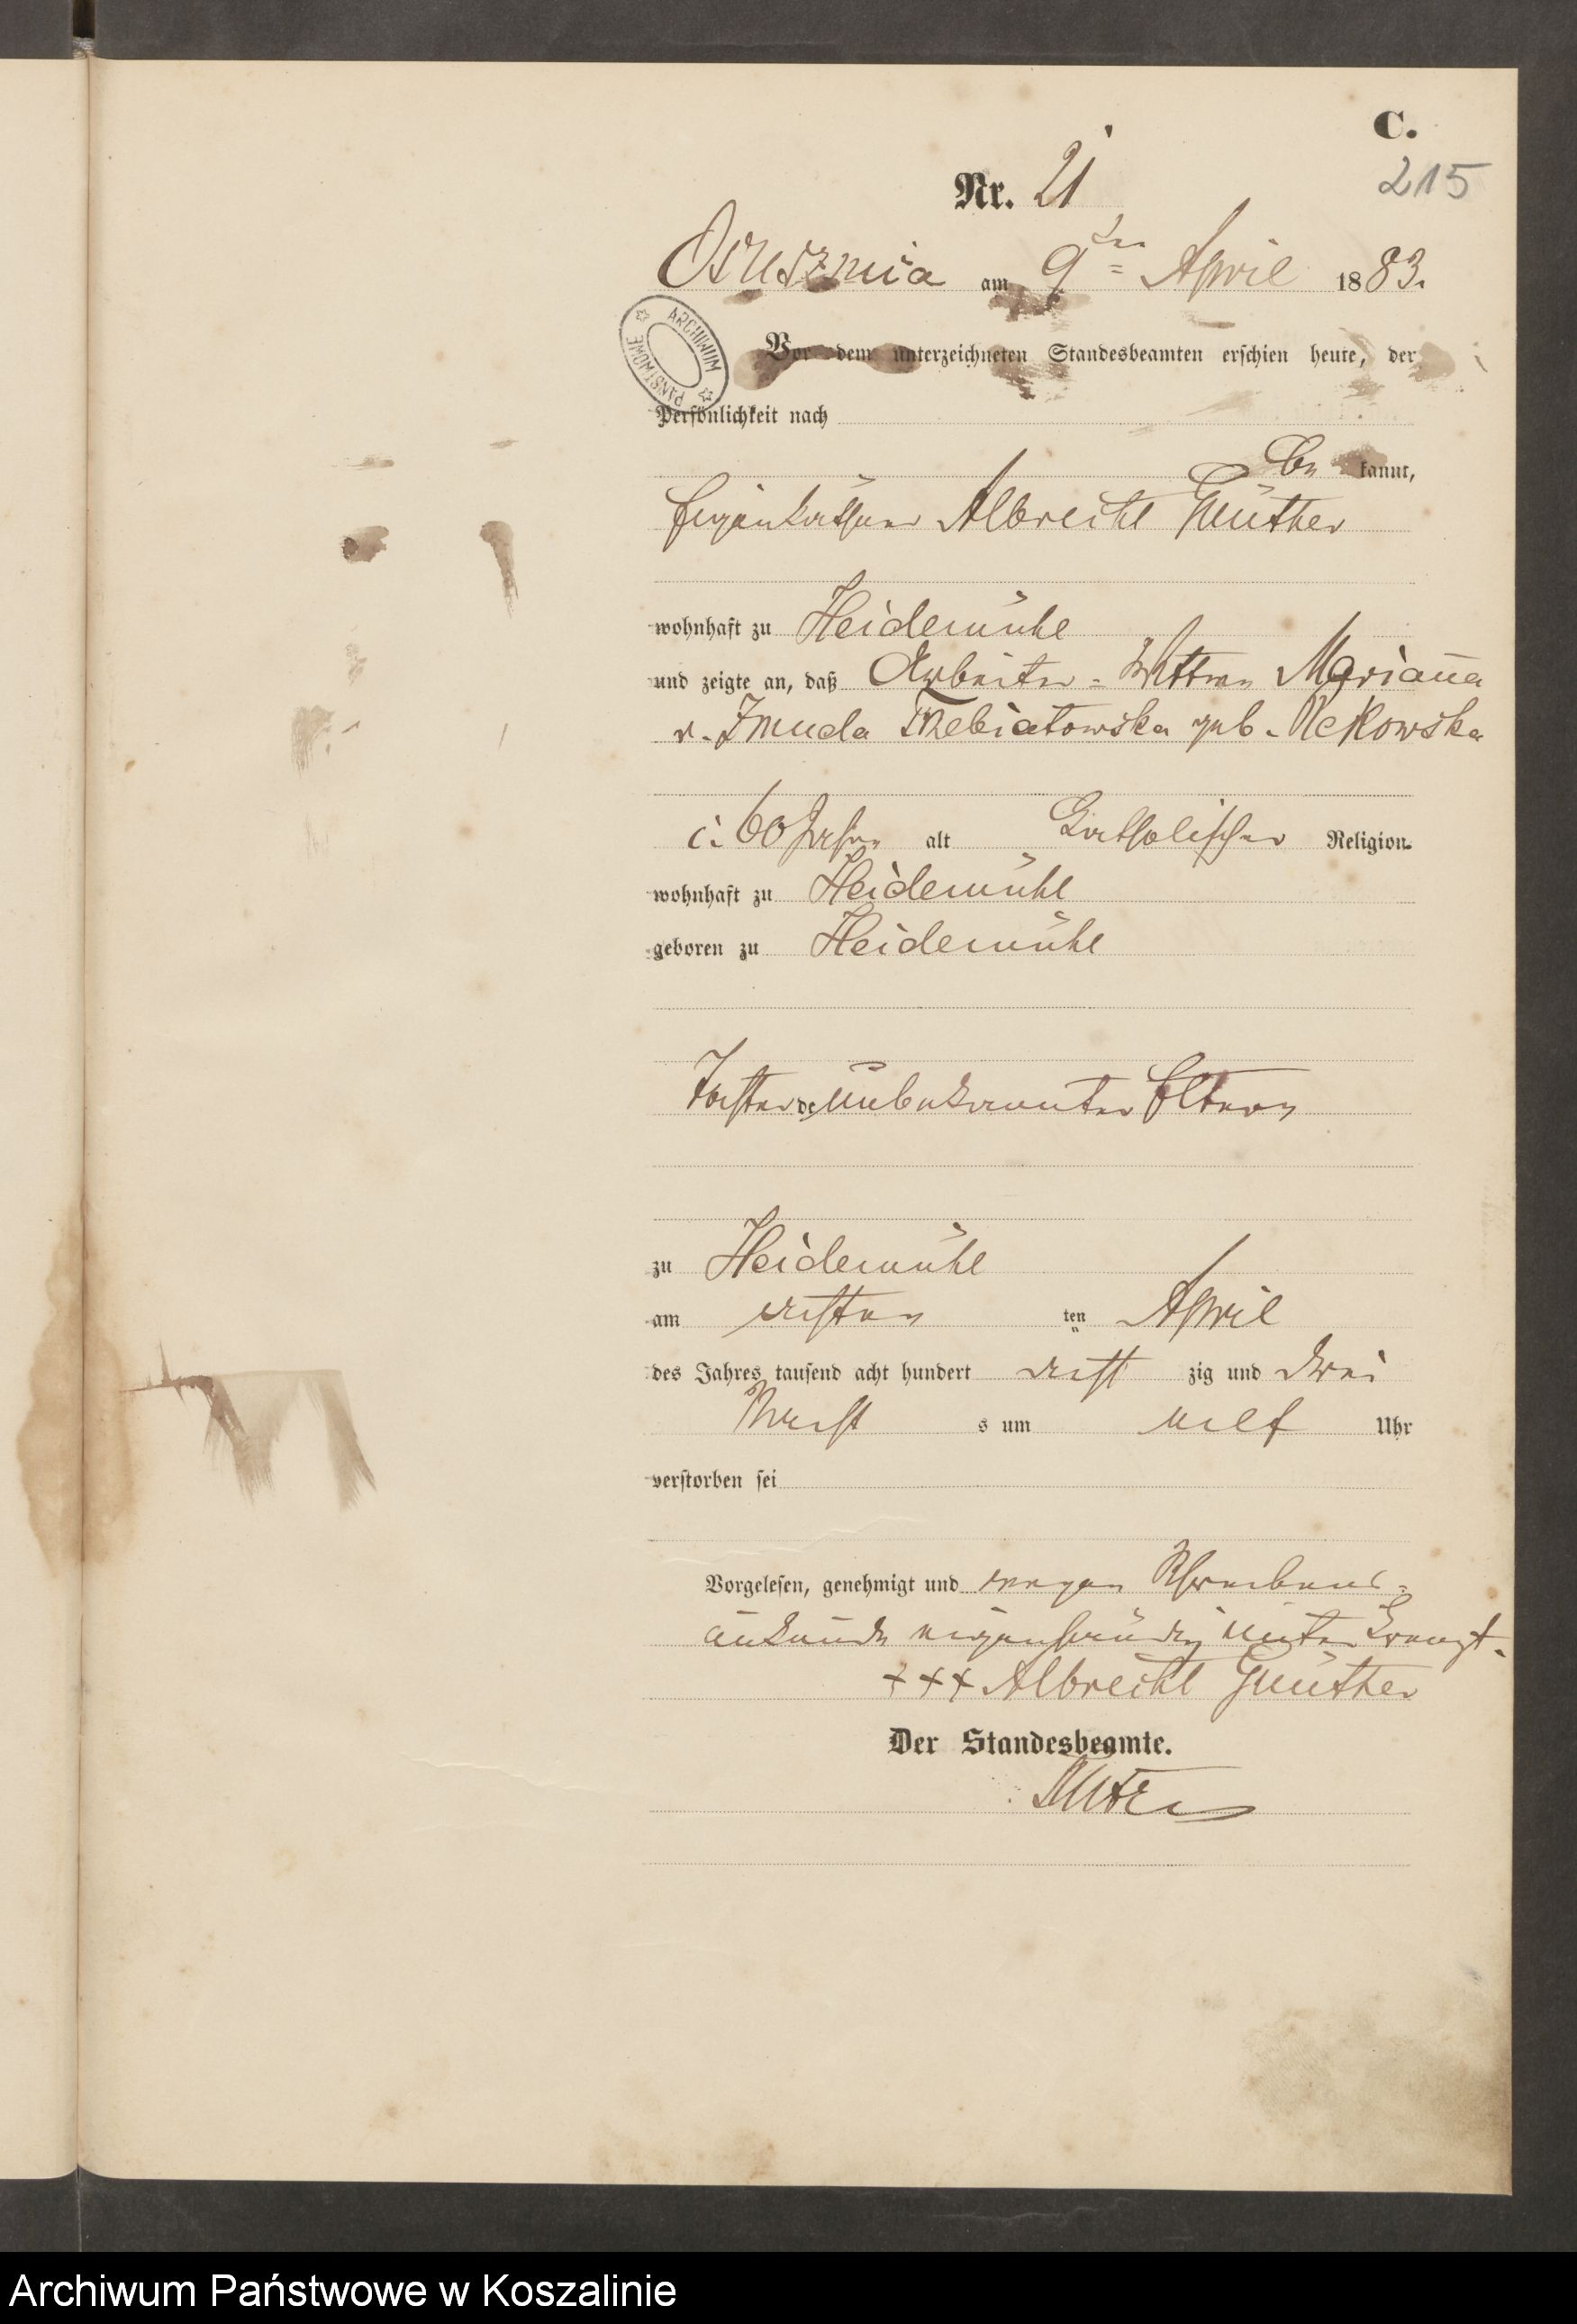 C.
215
Nr. 21
Osusznica am 9ten April 1883.
Vor dem unterzeichneten Standesbeamten erschien heute, der
Persönlichkeit nach
be kannt,
Eigenkäthner Albrecht Günther
wohnhaft zu Heidemühl
und zeigte an, daß Arbeiter-Wittwe Mariana
v. Zmuda Trzebiatowska geb. Rekowska
c. 60 Jahre alt Katholischer Religion
wohnhaft zu Heidemühl
geboren zu Heidemühl
Tochter der unbekannter Eltern
zu Heidemühl
am achten ten April
des Jahres tausend acht hundert acht zig und drei
Nacht s um elf Uhr
verstorben sei
Vorgelesen, genehmigt und wegen Schreibens-
unkunde eigenhändig unter Kreuzt.
+++ Albrecht Günther
Der Standesbeamte.
ARCHIWUM PAŃSTWOWE
Archiwum Państwowe w Koszalinie